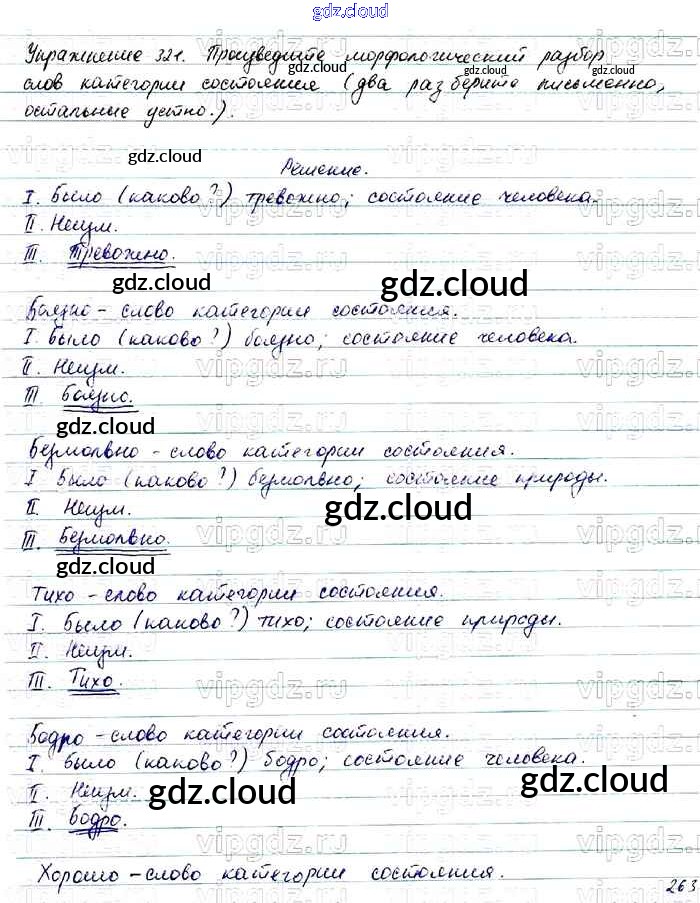 gdz.cloud
Упражнение 321. Произведите морфологический разбор
gdz.cloud gdz.cloud
слов категории состояния (два разберите письменно,
остальные устно.).
gdz.cloud
Решение.
I. Было (каково?) тревожно; состояние человека.
II. Неизм.
III. Тревожно.
gdz.cloud gdz.cloud
Боязно - слово категории состояния.
I. Было (каково?) боязно; состояние человека.
II. Неизм.
III Боязно.
gdz.cloud
Безмолвно - слово категории состояния.
I Было (каково?) безмолвно; состояние природы.
II. Неизм.
gdz.cloud
III. Безмолвно.
gdz.cloud
Тихо - слово категории состояния.
I. Было (каково?) тихо; состояние природы.
II. Неизм.
III. Тихо.
vipgdz.ru
Бодро - слово категории состояния.
I. Было (каково?) бодро; состояние человека.
II. Неизм.
gdz.cloud gdz.cloud
III. Бодро.
vipgdz.ru
Хорошо - слово категории состояния.
263